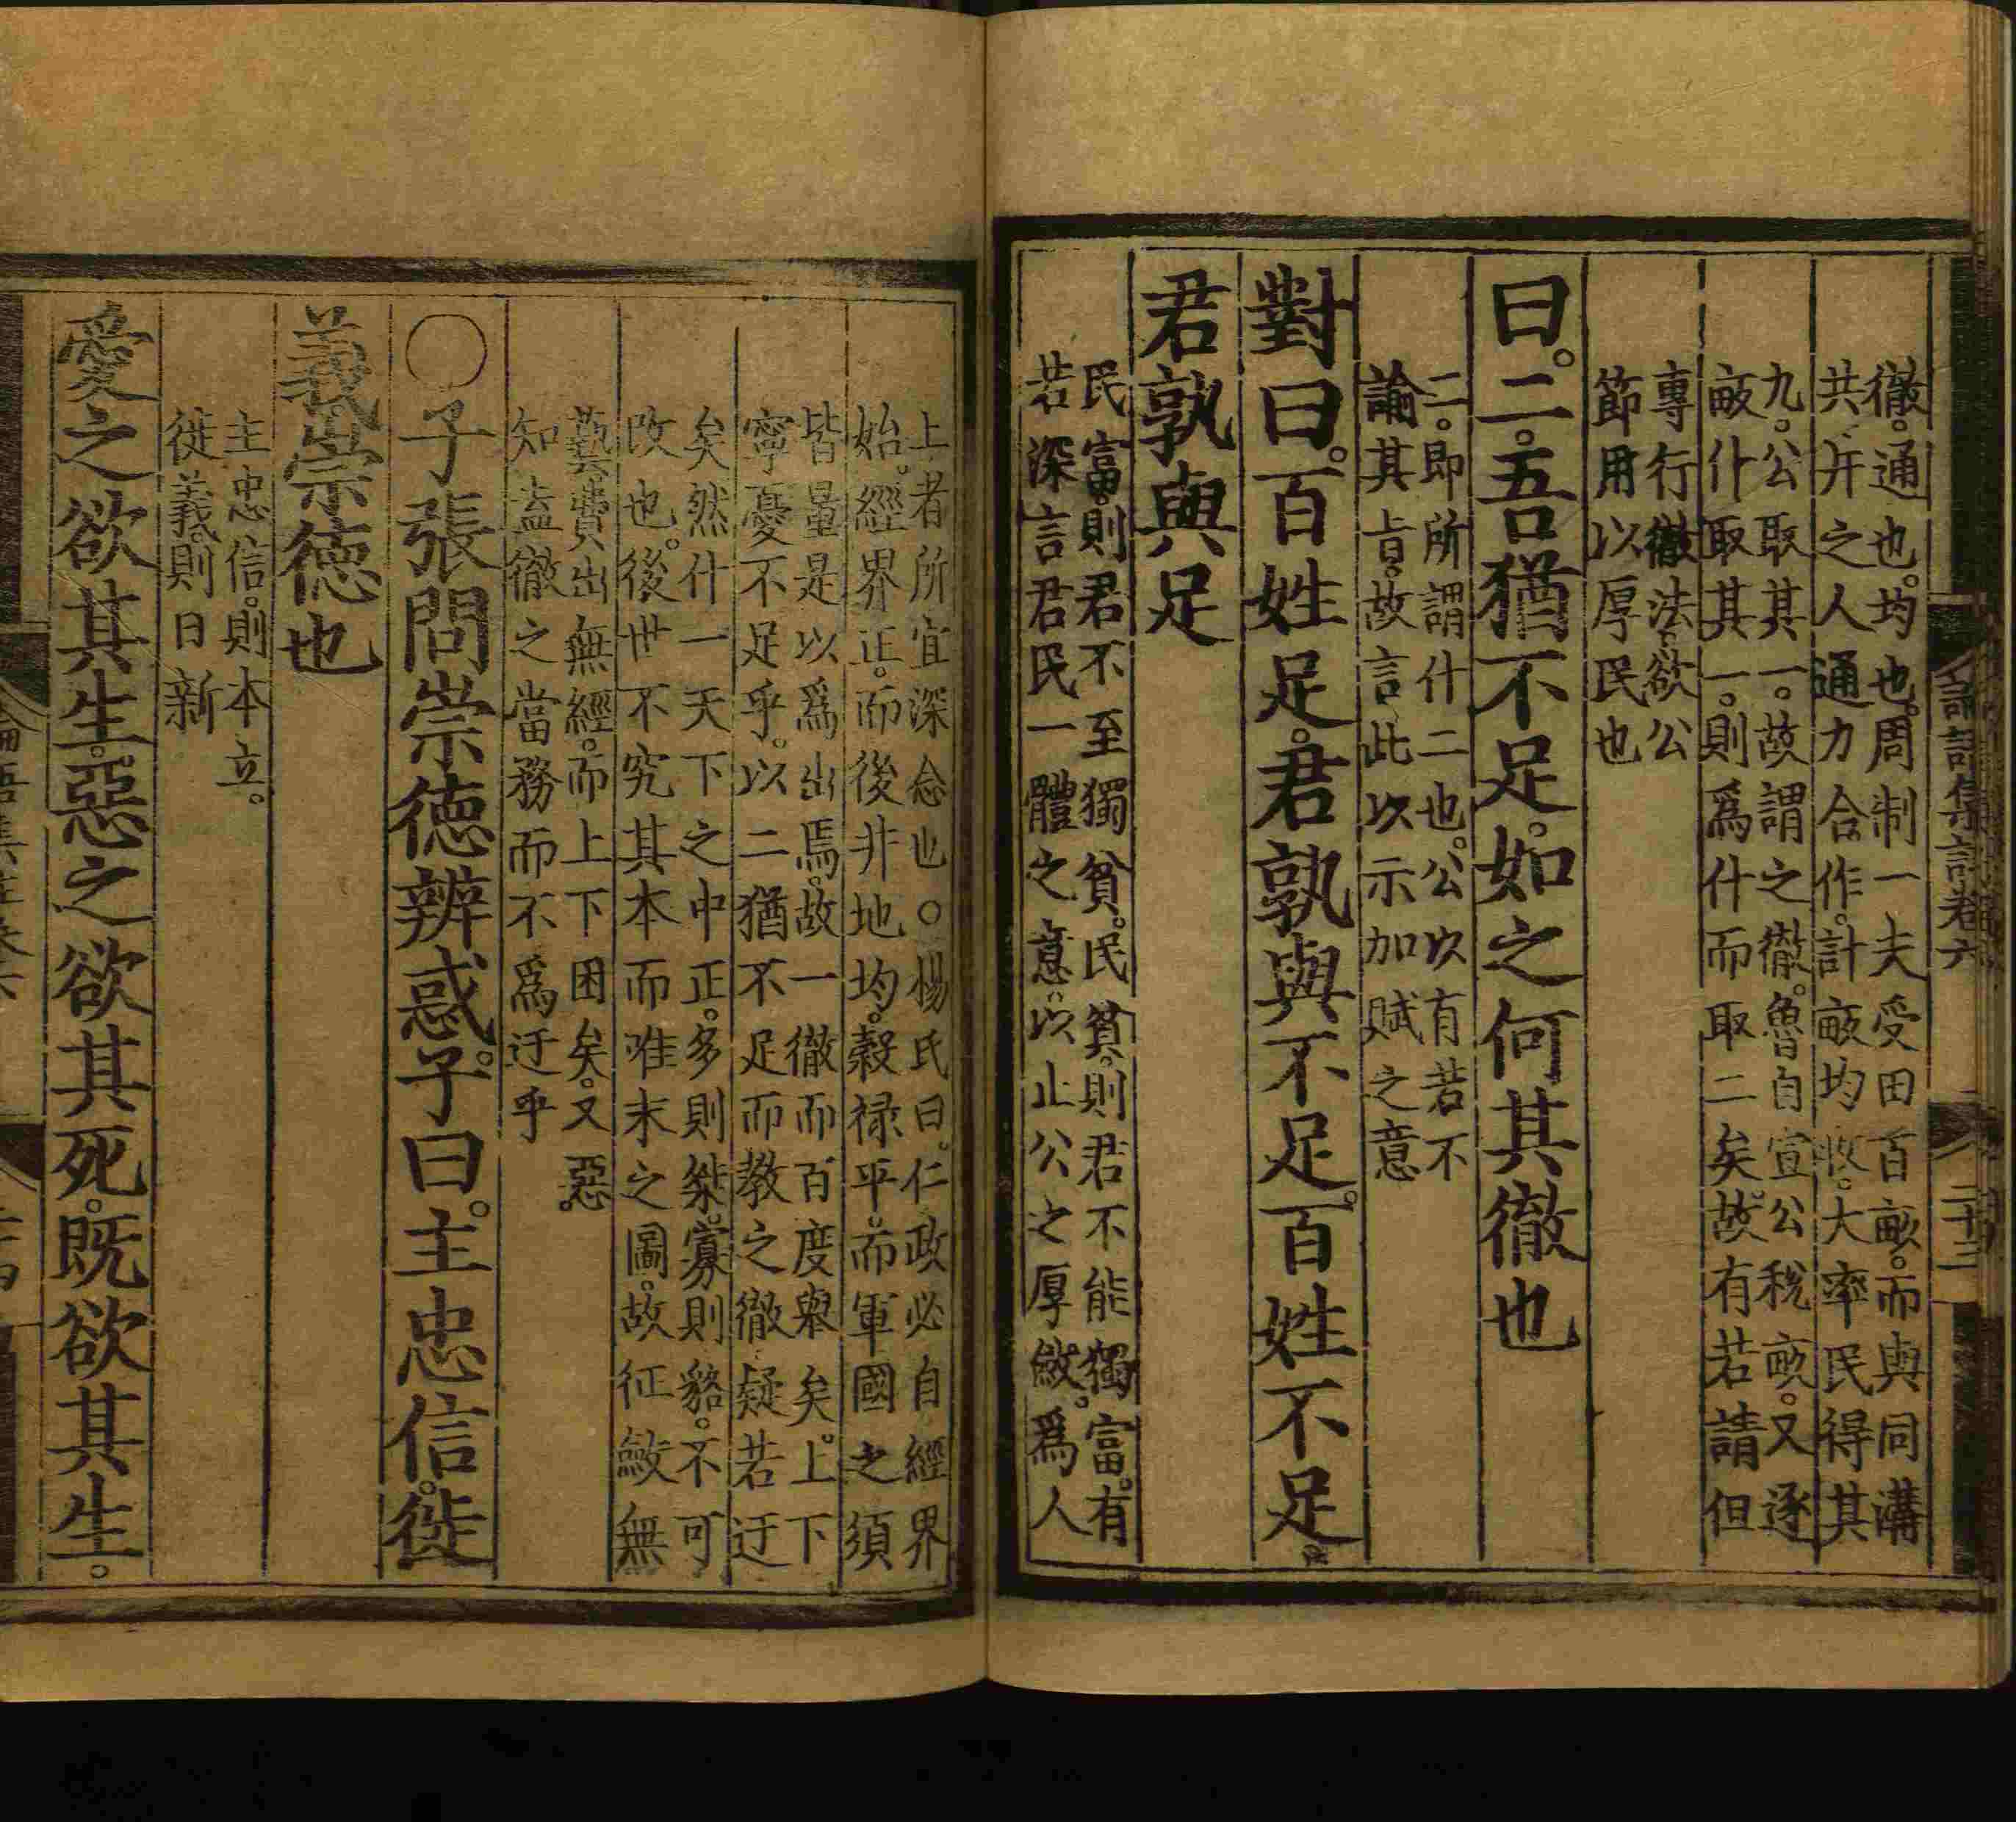 徹。通也。均也。周制一夫受田百畝。而與同溝
共井之人通力合作。計畝均收。大率民得其
九。公取其一。故謂之徹。魯自宣公稅畝。又逐
畝什取其一。則爲什而取二矣。故有若請但
專行徹法。欲公
節用以厚民也
曰。二。吾猶不足。如之何其徹也
二。即所謂什二也。公以有若不
諭其旨。故言此以示加賦之意
對曰。百姓足。君孰與不足。百姓不足。
君孰與足
民富。則君不至獨貧。民貧。則君不能獨富。有
若深言君民一體之意。以止公之厚斂。爲人
上者所宜深念也○楊氏曰。仁政必自經界
始。經界正。而後井地均。穀祿平。而軍國之須
皆量是以爲出焉。故一徹而百度舉矣。上下
寧憂不足乎。以二猶不足而教之徹疑若迂
矣然什一天下之中正。多則桀。寡則貉。不可
改也。後世不究其本而唯末之圖。故征斂無
藝費出無經。而上下困矣。又惡。
知盍徹之當務而不爲迂乎
○子張問崇德辨惑。子曰。主忠信。徙
義。崇德也
主忠信。則本立。
徙義。則日新
愛之欲其生。惡之欲其死。既欲其生。
論語集註卷六
二十三